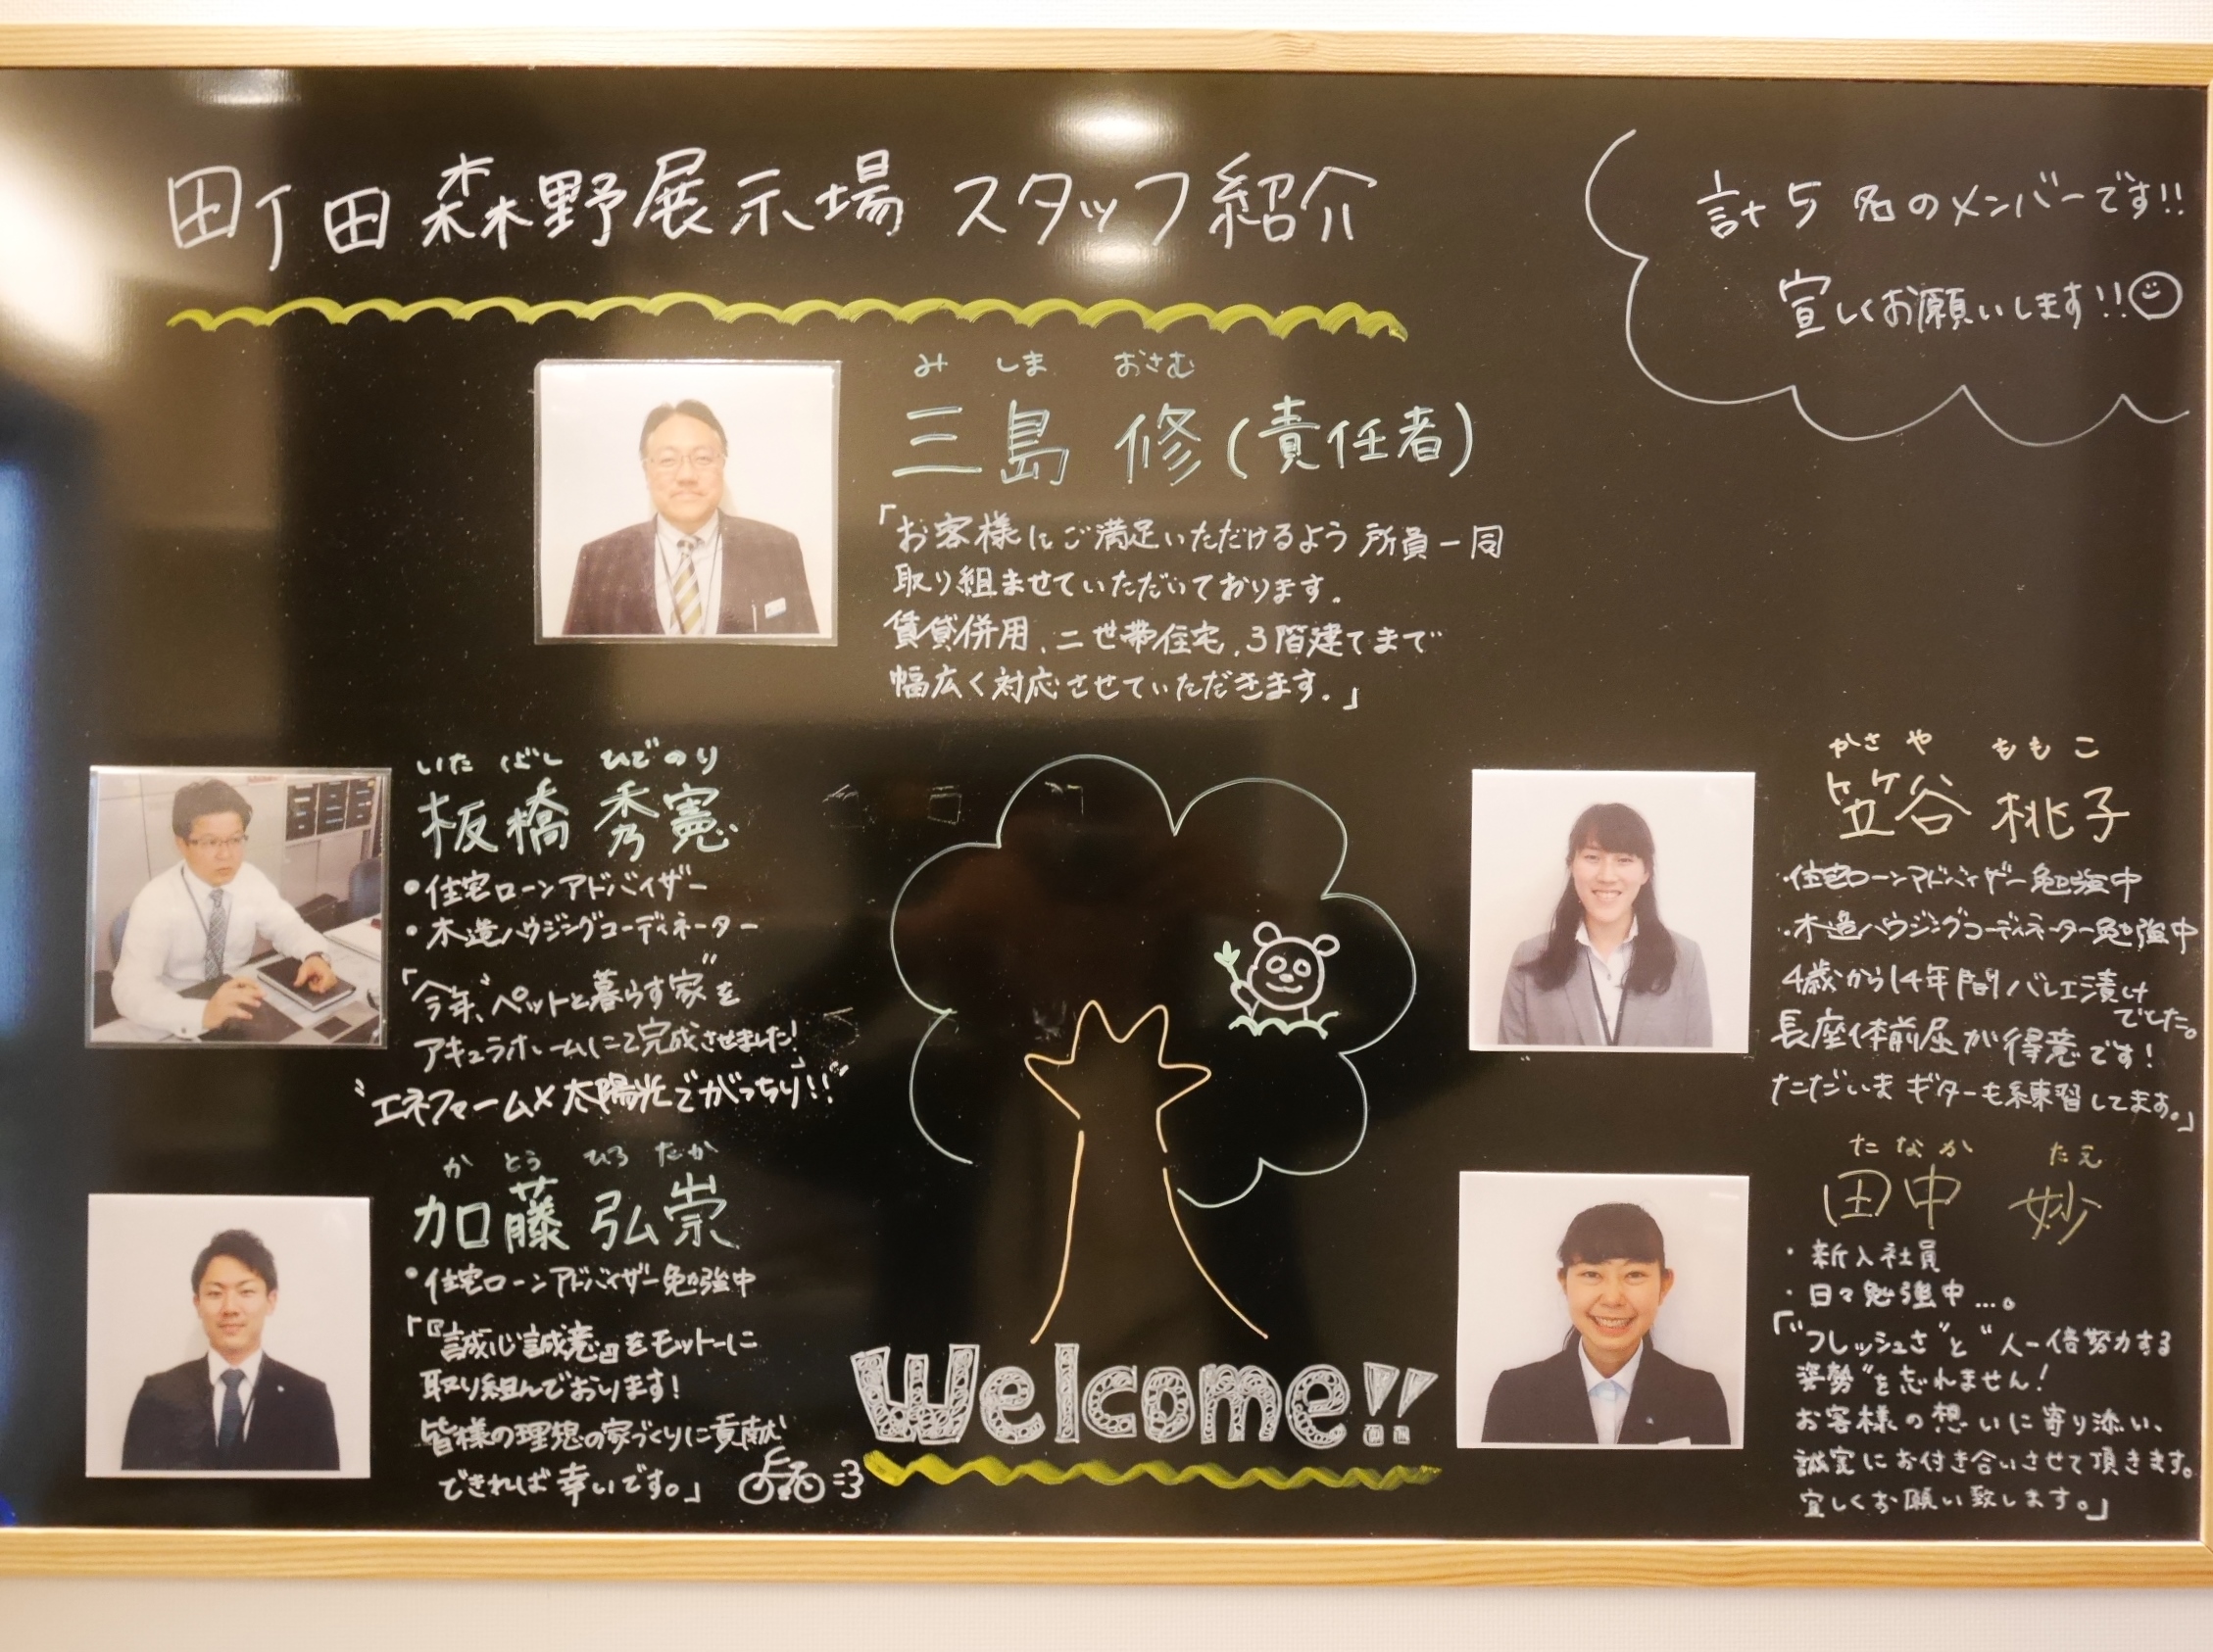 町田森野展示場 スタッフ紹介
計5名のメンバーです!!
宜しくお願いします!!
み しま おさむ
三島 修(責任者)
「お客様にご満足いただけるよう 所員一同
取り組ませていただいております.
賃貸併用、二世帯住宅、3階建てまで
幅広く対応させていただきます.」
いた ばし ひでのり
板橋 秀憲
・住宅ローンアドバイザー
・木造ハウジングコーディネーター
「今年、"ペットと暮らす家"を
アキュラホームにて完成させました!」
"エネファーム×太陽光でがっちり!!"
か とう ひろ たか
加藤 弘崇
・住宅ローンアドバイザー勉強中
「『誠心誠意』をモットーに
取り組んでおります!
皆様の理想の家づくりに貢献
できれば幸いです。」
Welcome!!
かさ や ももこ
笠谷 桃子
・住宅ローンアドバイザー勉強中
・木造ハウジングコーディネーター勉強中
4歳から14年間バレエ漬け
でした。
長座体前屈が得意です!
ただいまギターも練習してます。」
たなか たえ
田中 妙
・新入社員
・日々勉強中…。
「"フレッシュさ"と"人一倍努力する
姿勢"を忘れません!
お客様の想いに寄り添い、
誠実にお付き合いさせて頂きます。
宜しくお願い致します。」